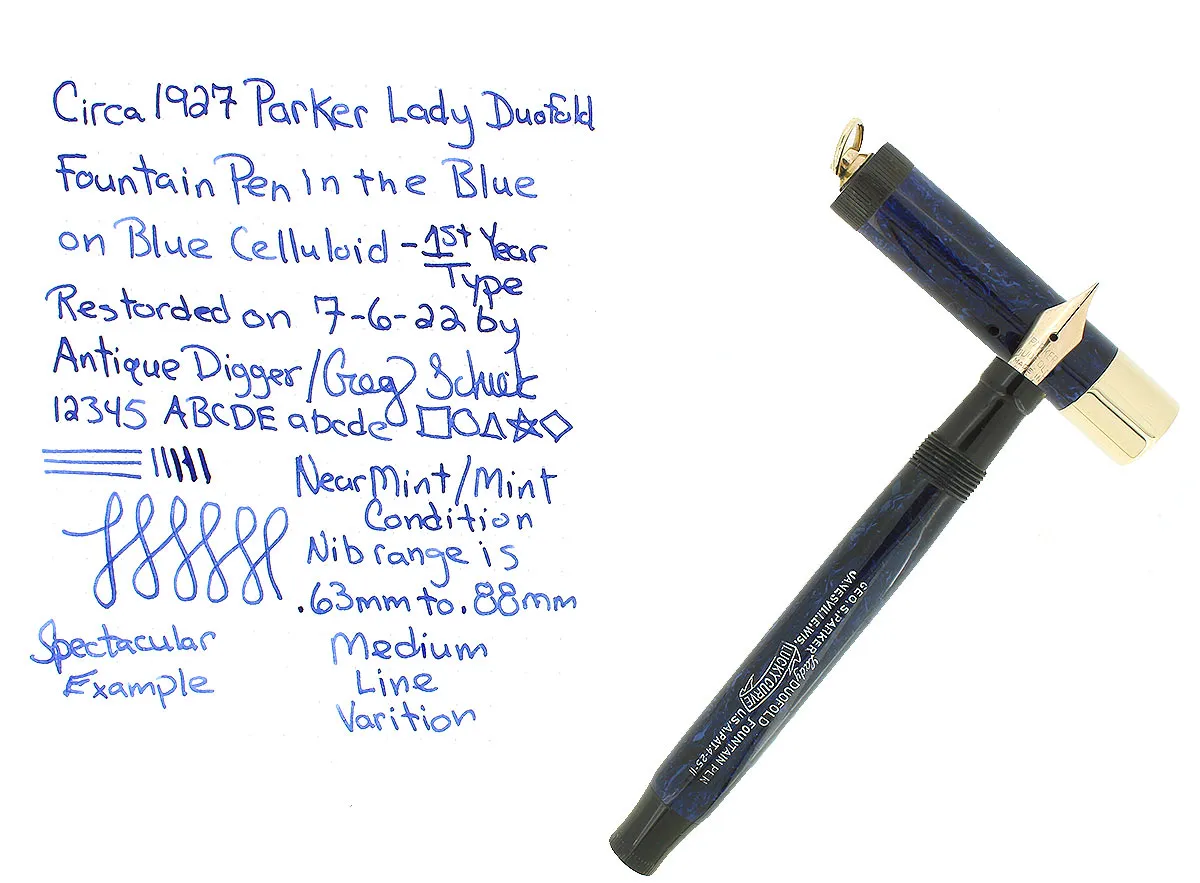 Circa 1927 Parker Lady Duofold
Fountain Pen in the Blue
on Blue Celluloid - 1st Year
Type
Restorded on 7-6-22 by
Antique Digger/Greg
12345 ABCDE abcde
Near Mint/Mint
Condition
Nib range is
.63mm to .88mm
Spectacular
Example
Medium
Line
Varition
GEO. S. PARKER Lady DUOFOLD FOUNTAIN PEN
JANESVILLE, WIS. LUCKY CURVE U.S.A. PAT. 4-25-11